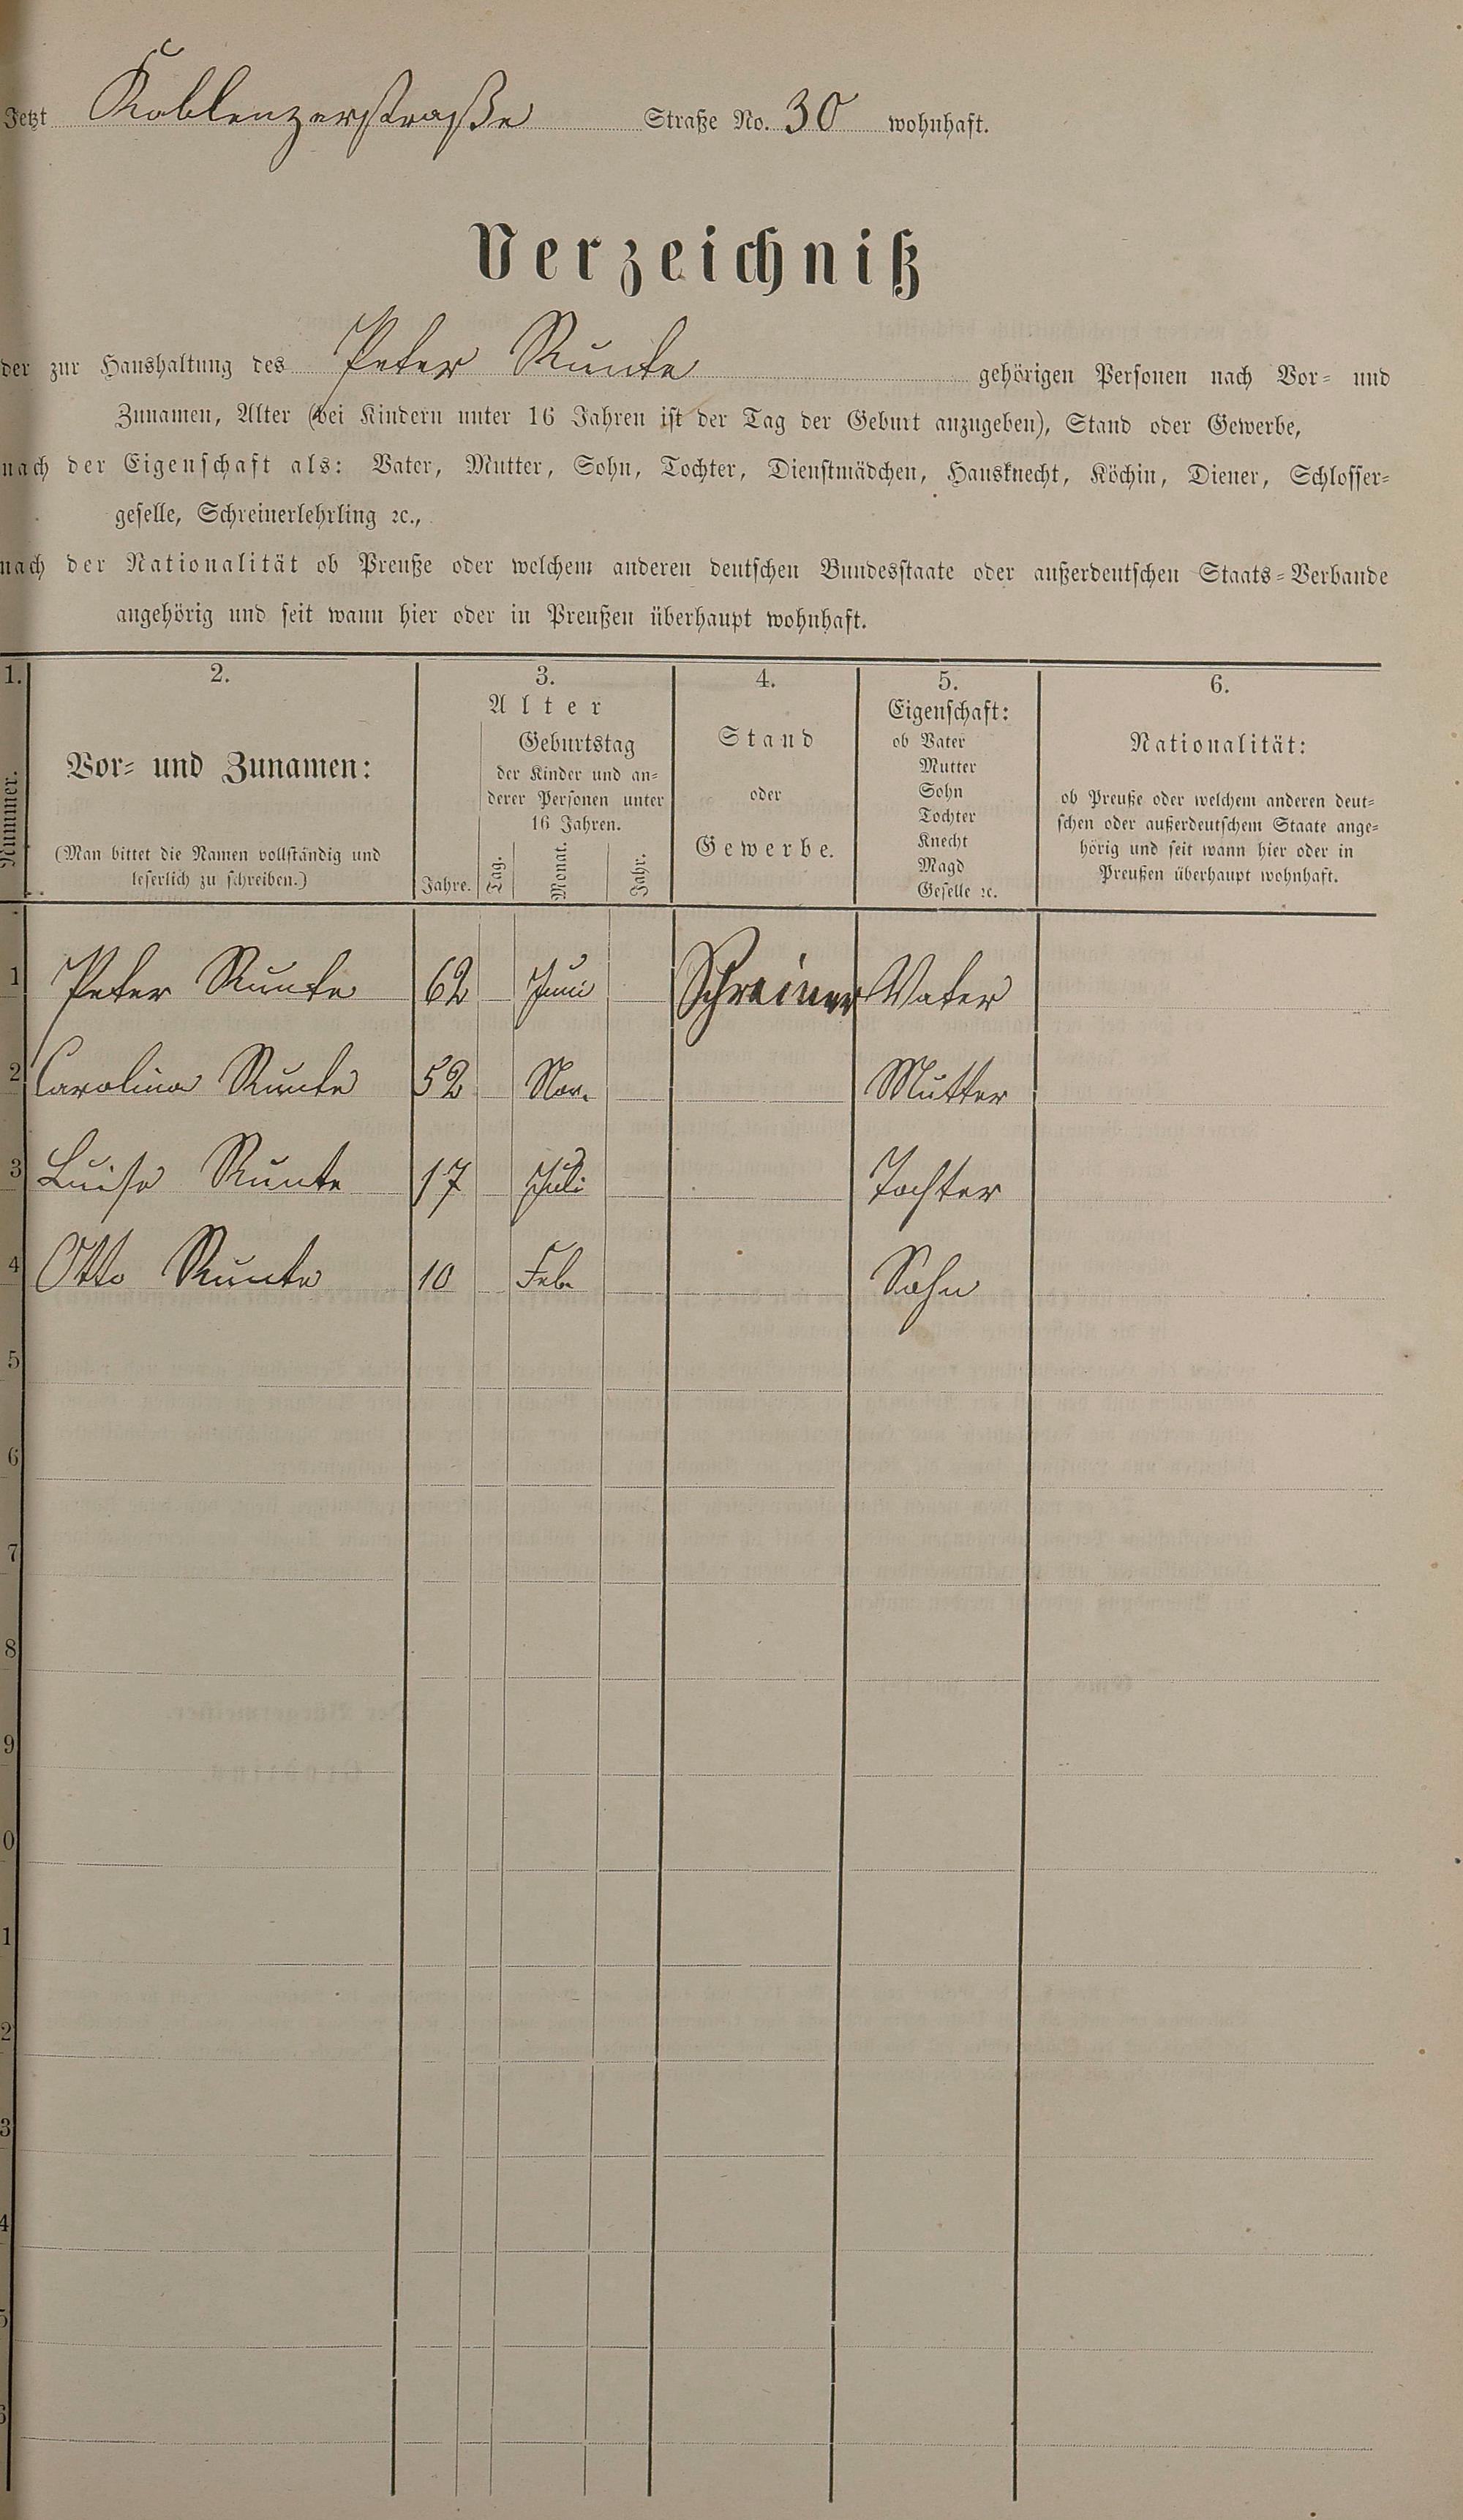 Jetzt Koblenzerstraße Straße No. 30 wohnhaft.
Verzeichniß
der zur Haushaltung des Peter Runte gehörigen Personen nach Vor- und
Zunamen, Alter (bei Kindern unter 16 Jahren ist der Tag der Geburt anzugeben), Stand oder Gewerbe,
nach der Eigenschaft als: Vater, Mutter, Sohn, Tochter, Dienstmädchen, Hausknecht, Köchin, Diener, Schlosser-
geselle, Schreinerlehrling ꝛc.,
nach der Nationalität ob Preuße oder welchem anderen deutschen Bundesstaate oder außerdeutschen Staats-Verbande
angehörig und seit wann hier oder in Preußen überhaupt wohnhaft.
1. 2. 3. 4. 5. 6.
Nummer.
Vor- und Zunamen:
(Man bittet die Namen vollständig und
leserlich zu schreiben.)
Alter
Jahre.
Geburtstag
der Kinder und an-
derer Personen unter
16 Jahren.
Tag. Monat. Jahr.
Stand
oder
Gewerbe.
Eigenschaft:
ob Vater
Mutter
Sohn
Tochter
Knecht
Magd
Geselle ꝛc.
Nationalität:
ob Preuße oder welchem anderen deut-
schen oder außerdeutschem Staate ange-
hörig und seit wann hier oder in
Preußen überhaupt wohnhaft.
1 Peter Runte 62 Juni Schreiner Vater
2 Carolina Runte 52 Nov. Mutter
3 Luise Runte 17 Juli Tochter
4 Otto Runte 10 Feb. Sohn
5
6
7
8
9
0
1
2
3
4
5
6